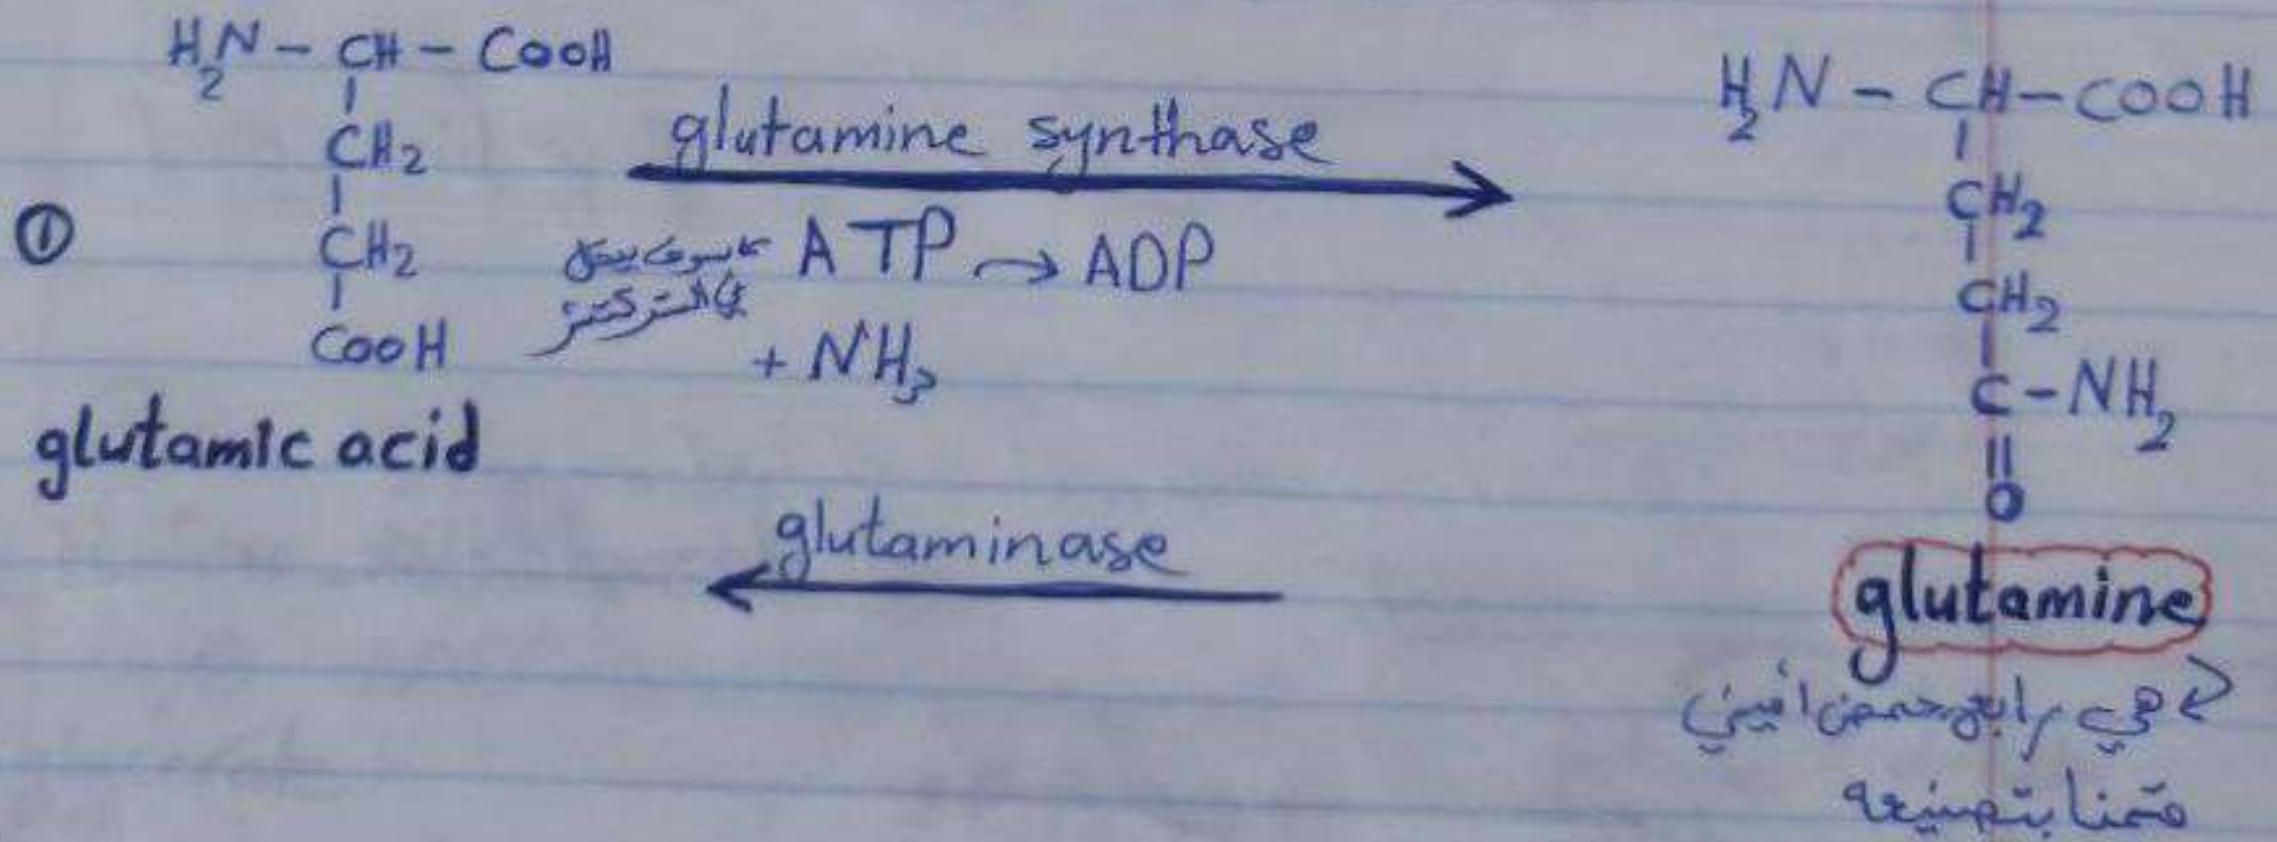 H₂N - CH - COOH
CH₂
CH₂
COOH
glutamic acid
①
glutamine synthase
ATP → ADP
+ NH₃
glutaminase
H₂N - CH - COOH
CH₂
CH₂
C - NH₂
O
glutamine
هي رابع حمض أميني
قمنا بتصنيعه